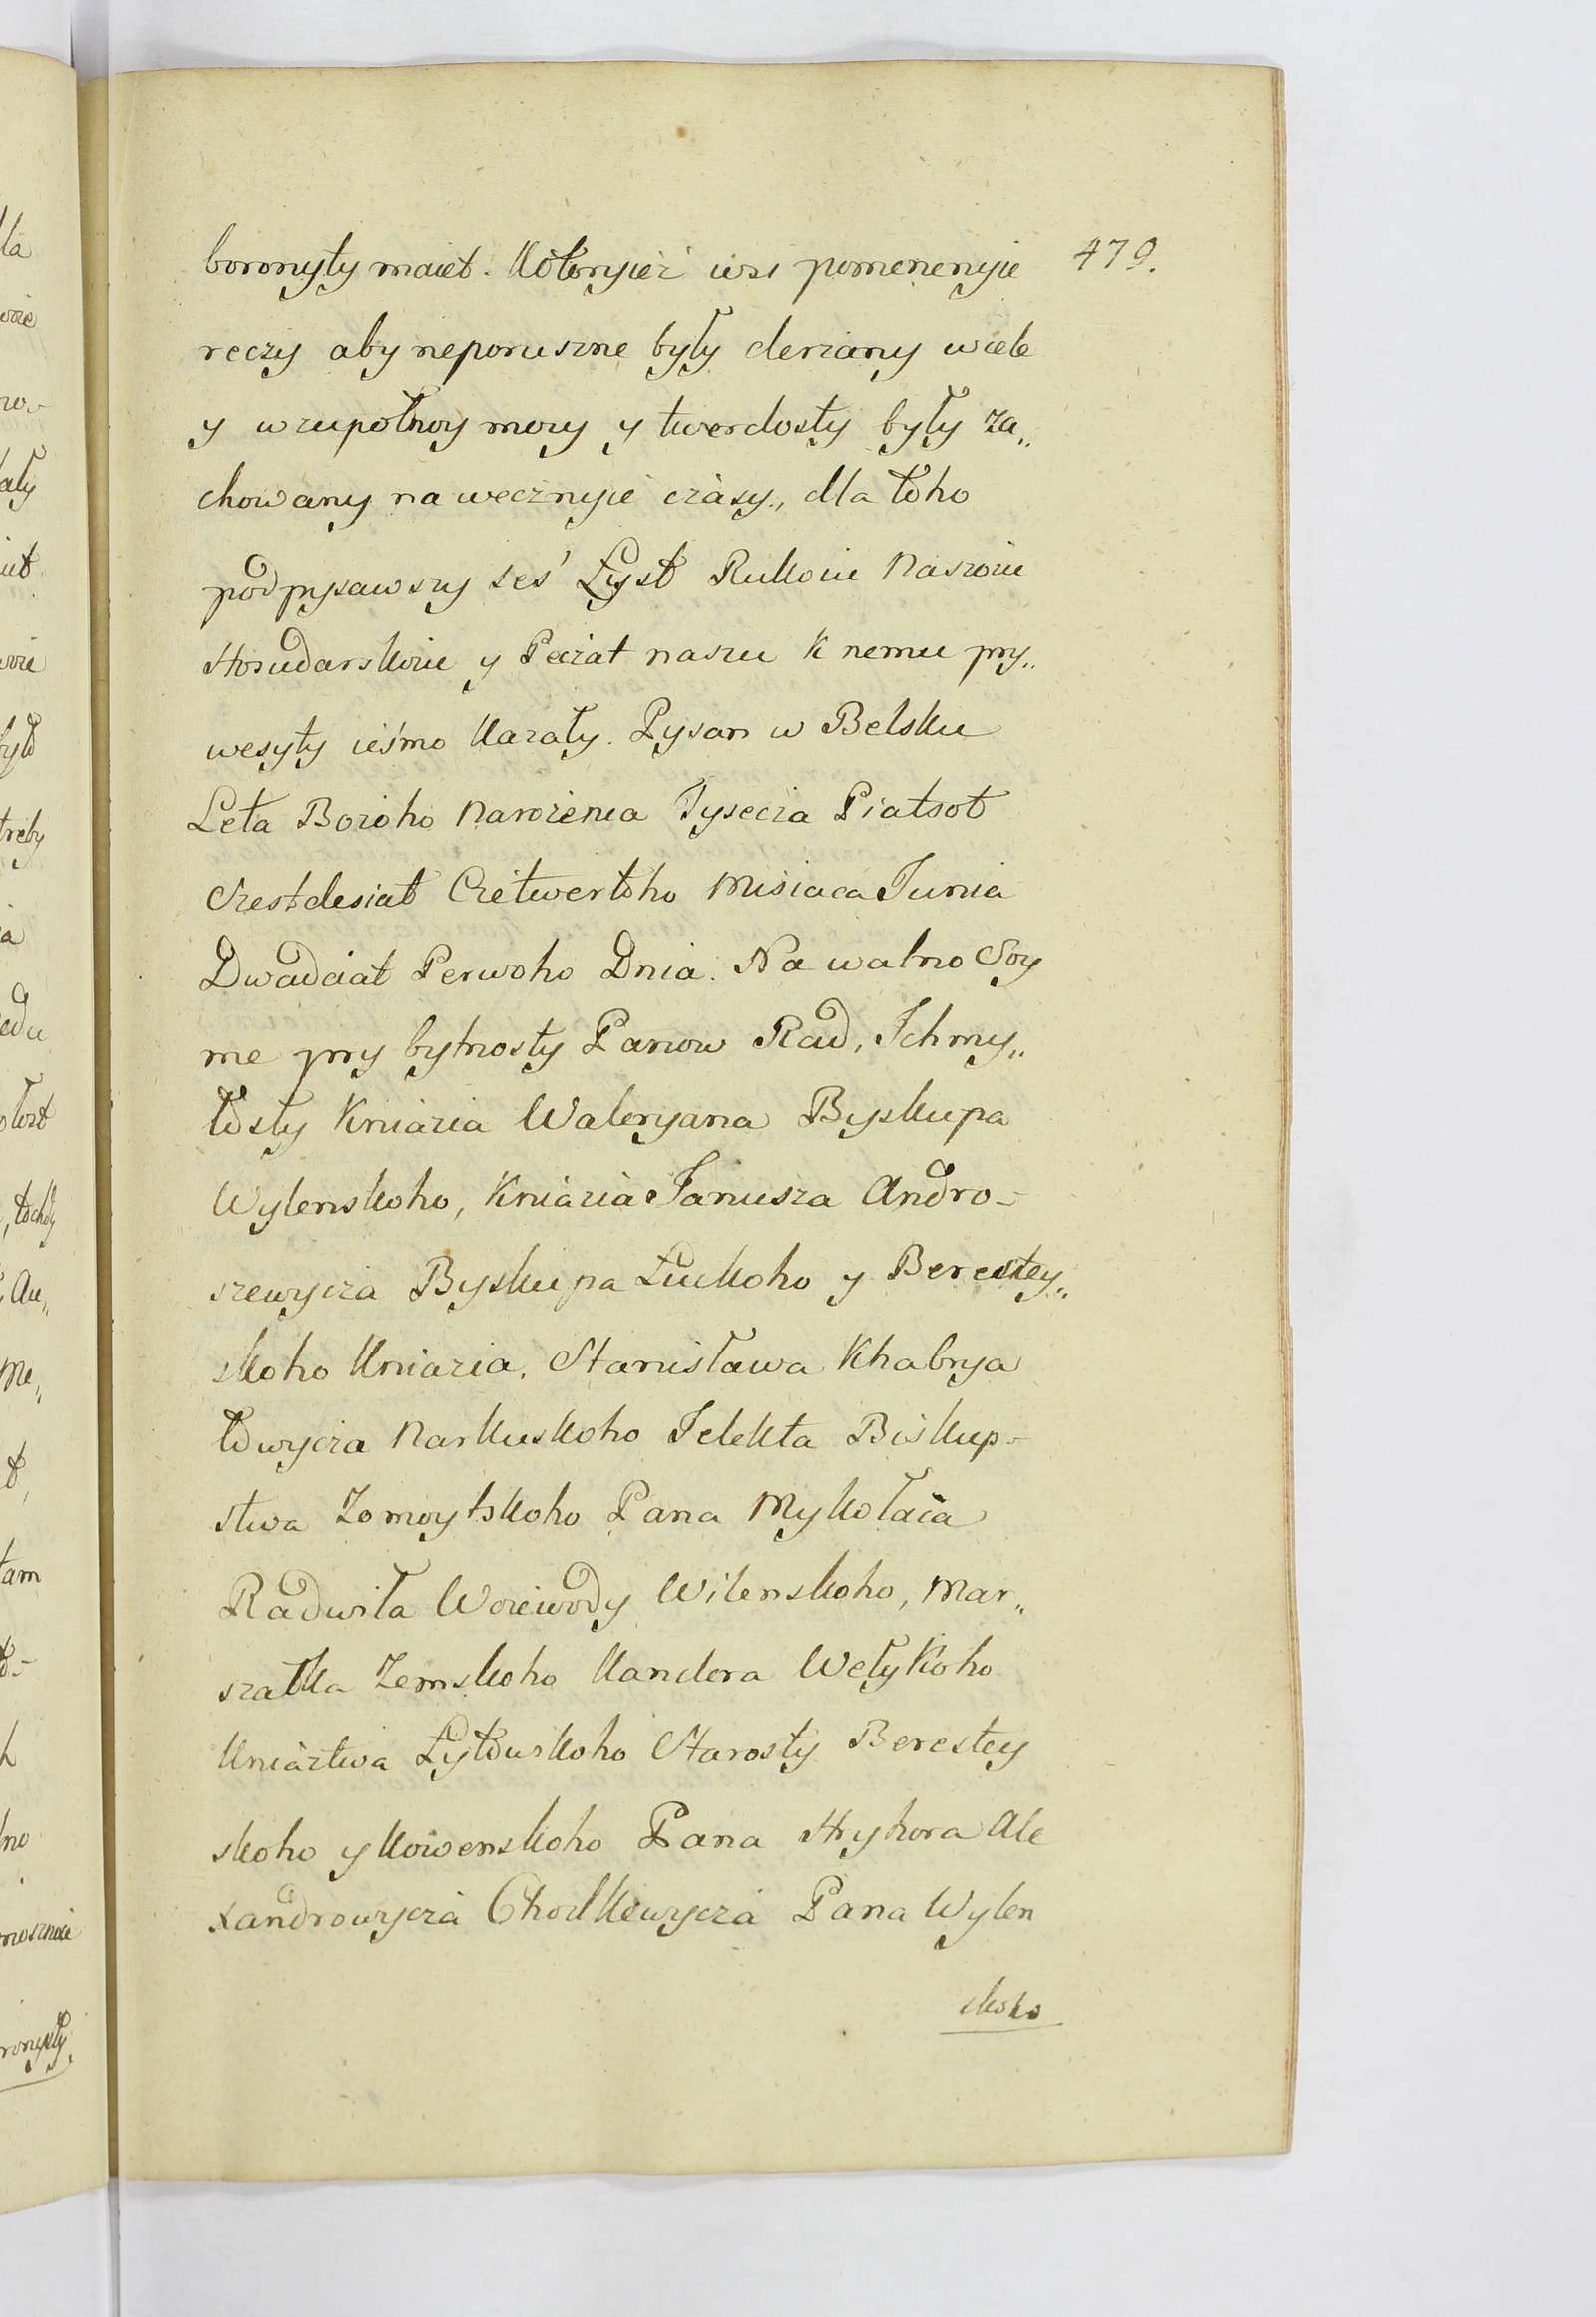 479.
boronyły maiet. Kotoryież wsi pomenenyie
reczy aby neporuszne były derżany w cele
y w zupołnoy mocy y twerdosty były za„
chowany na wecznyie czásy„ dla toho
podpysawszy seś Lyst Rukoiu Naszoiu
Hosudarskoiu y Peczat naszu k nemu pry„
wesyty ieśmo kazały. Pysan w Belsku
Leta Bożoho Narożenia Tysecza Piatsot
Szestdesiat Czetwertoho Misiaca Junia
Dwadciat Perwoho Dnia. Na walno Soy
me pry bytnosty Panow Rad, Ichmy„
łosty Kniazia Waleryana Byskupa
Wylenskoho, Kniazia Janusza Andro-
szewycza Byskupa Łuckoho y Berestey„
skoho Kniazia, Stanisława Khabrya
łowycza Narkuskoho Jelekta Biskup-
stwa Żomoytskoho Pana Mykołaia
Radwiła Woiewody Wilenskoho, Mar„
szałka Zemskoho Kanclera Wełykoho
Kniaztwa Lytowskoho Starosty Berestey
skoho y Kowenskoho Pana Hryhora Ale
xandrowycza Chodkewycza Pana Wylen
skoho